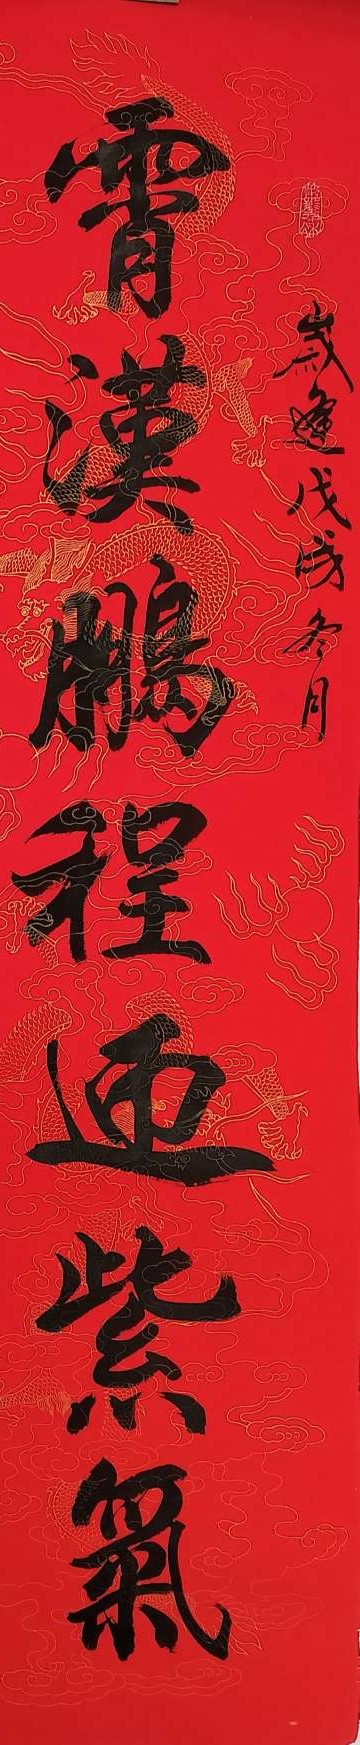 歲逢戊戌冬月
霄漢鵬程迴紫氣